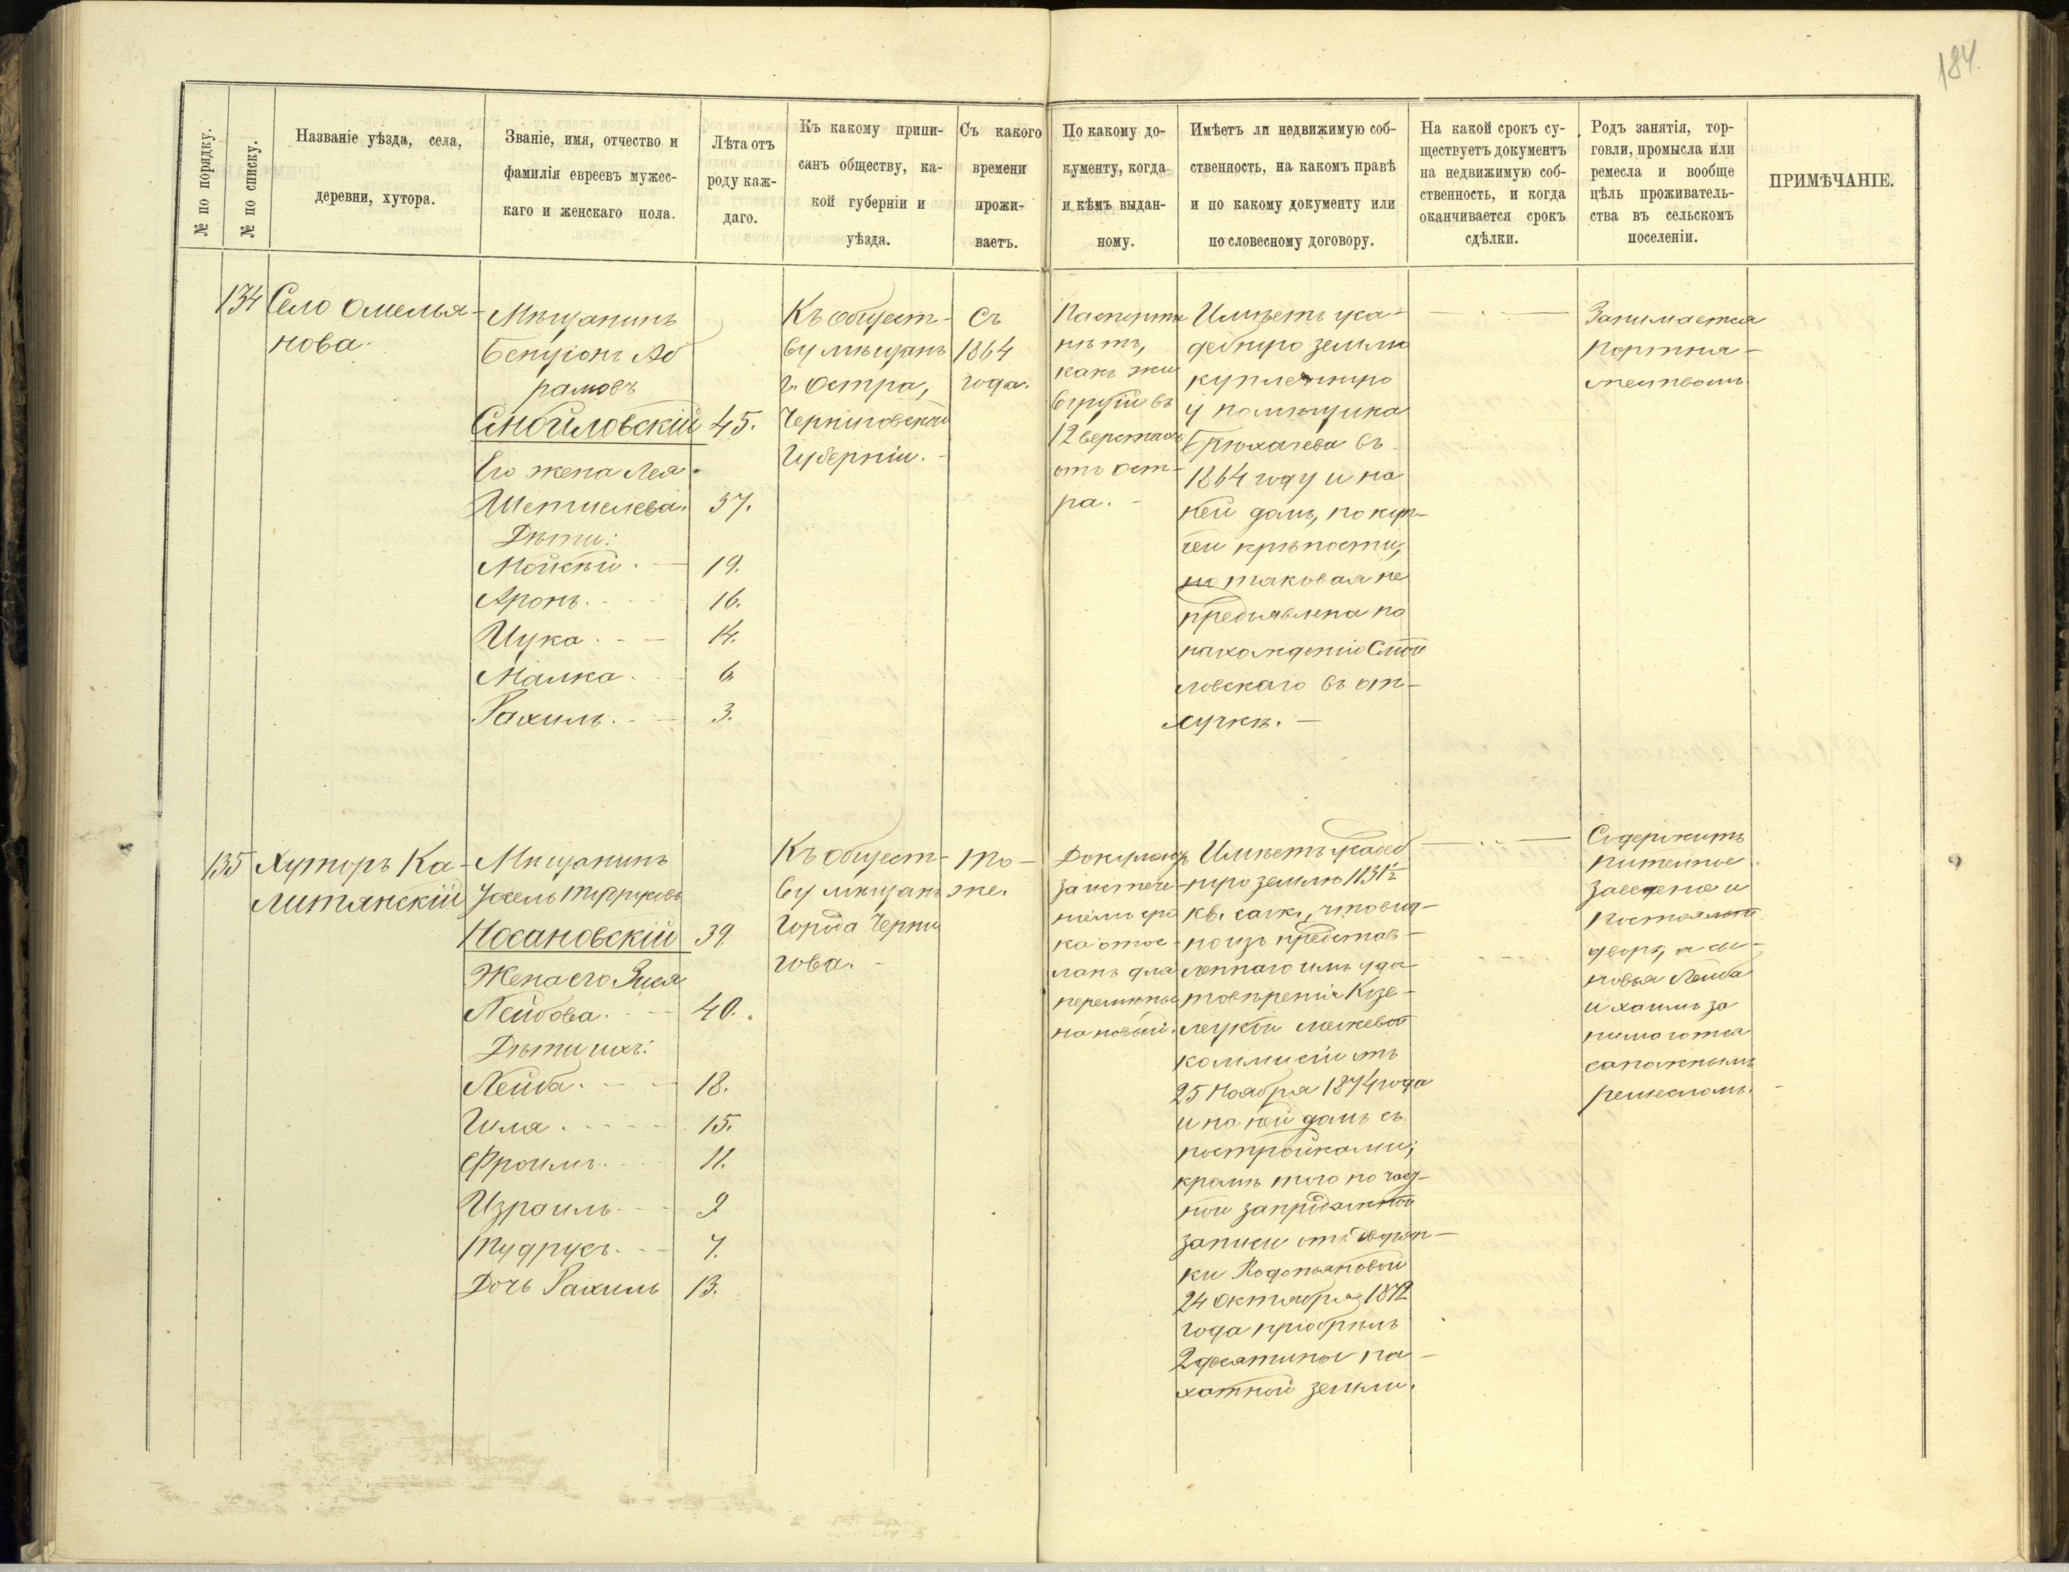 184.
№ по порядку.
№ по списку.
Названіе уѣзда, села,
деревни, хутора.
Званіе, имя, отчество и
фамилія евреевъ мужес-
каго и женскаго пола.
Лѣта отъ
роду каж-
даго.
Къ какому припи-
санъ обществу, ка-
кой губерніи и
уѣзда.
Съ какого
времени
прожи-
ваетъ.
По какому до-
кументу, когда
и кѣмъ выдан-
ному.
Имѣетъ ли недвижимую соб-
ственность, на какомъ правѣ
и по какому документу или
по словесному договору.
На какой срокъ су-
ществуетъ документъ
на недвижимую соб-
ственность, и когда
оканчивается срокъ
сдѣлки.
Родъ занятія, тор-
говли, промысла или
ремесла и вообще
цѣль проживатель-
ства въ сельскомъ
поселеніи.
ПРИМѢЧАНІЕ.
134
Село Омелья-
нова.
Мѣщанинъ
Бенціонъ Аб
рамовъ
45.
Его жена Лея
37.
Дѣти:
19.
Аронъ. 16.
14.
Малка. 6
Рахиль. 3.
Къ общест-
ву мѣщанъ
г. Остра,
Черниговской
Губерніи.
Съ
1864
года.
нѣтъ,
какъ жи
вущій въ
12 верстахъ
отъ Ост-
ра.
Имѣетъ уса-
дебную землю
купленную
у помѣщика
въ
1864 году и на
ней домъ, по куп-
чей крѣпости,
но таковая не
предъявлена по
нахожденію
ловскаго въ от-
лучкѣ.
Занимается
портня-
жествомъ
135
Хуторъ Ка-
литянскій
Мѣщанинъ
Носановскій 39.
Жена его
Лейбова. 40.
Дѣти ихъ:
Лейба. 18.
Гиля. 15.
Фроимъ. 11.
Израиль. 9
Тудрусъ. 7.
Дочь Рахиль 13.
Къ общест-
ву мѣщанъ
города Черни
гова.
То-
же.
Документъ
за истече
ніемъ сро
ка отос-
ланъ для
перемѣны
на новый.
Имѣетъ усадеб
ную землю 1131½
кв. саж., что вид-
но изъ представ-
леннаго имъ удо-
стовѣренія Козе-
лецкой межевой
коммисіи отъ
25 Ноября 1874 года
и на ней домъ съ
постройками;
кромѣ того по част-
ной запродажной
записи отъ
ки
24 Октября 1872
года пріобрѣлъ
2 десятины па-
хатной земли.
Содержитъ
питейное
заведеніе и
постоялый
дворъ, а сы-
новья Лейба
и Хаимъ за
нимаются
сапожнымъ
ремесломъ.